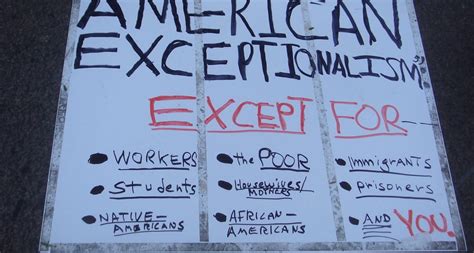 AMERICAN
EXCEPTIONALISM":
EXCEPT FOR—
• WORKERS
• Students
• NATIVE-
AMERICANS
• the POOR
• HOUSEWIVES/
MOTHERS
• AFRICAN-
AMERICANS
• immigRANTS
• pRisoneRs
• AND YOU.